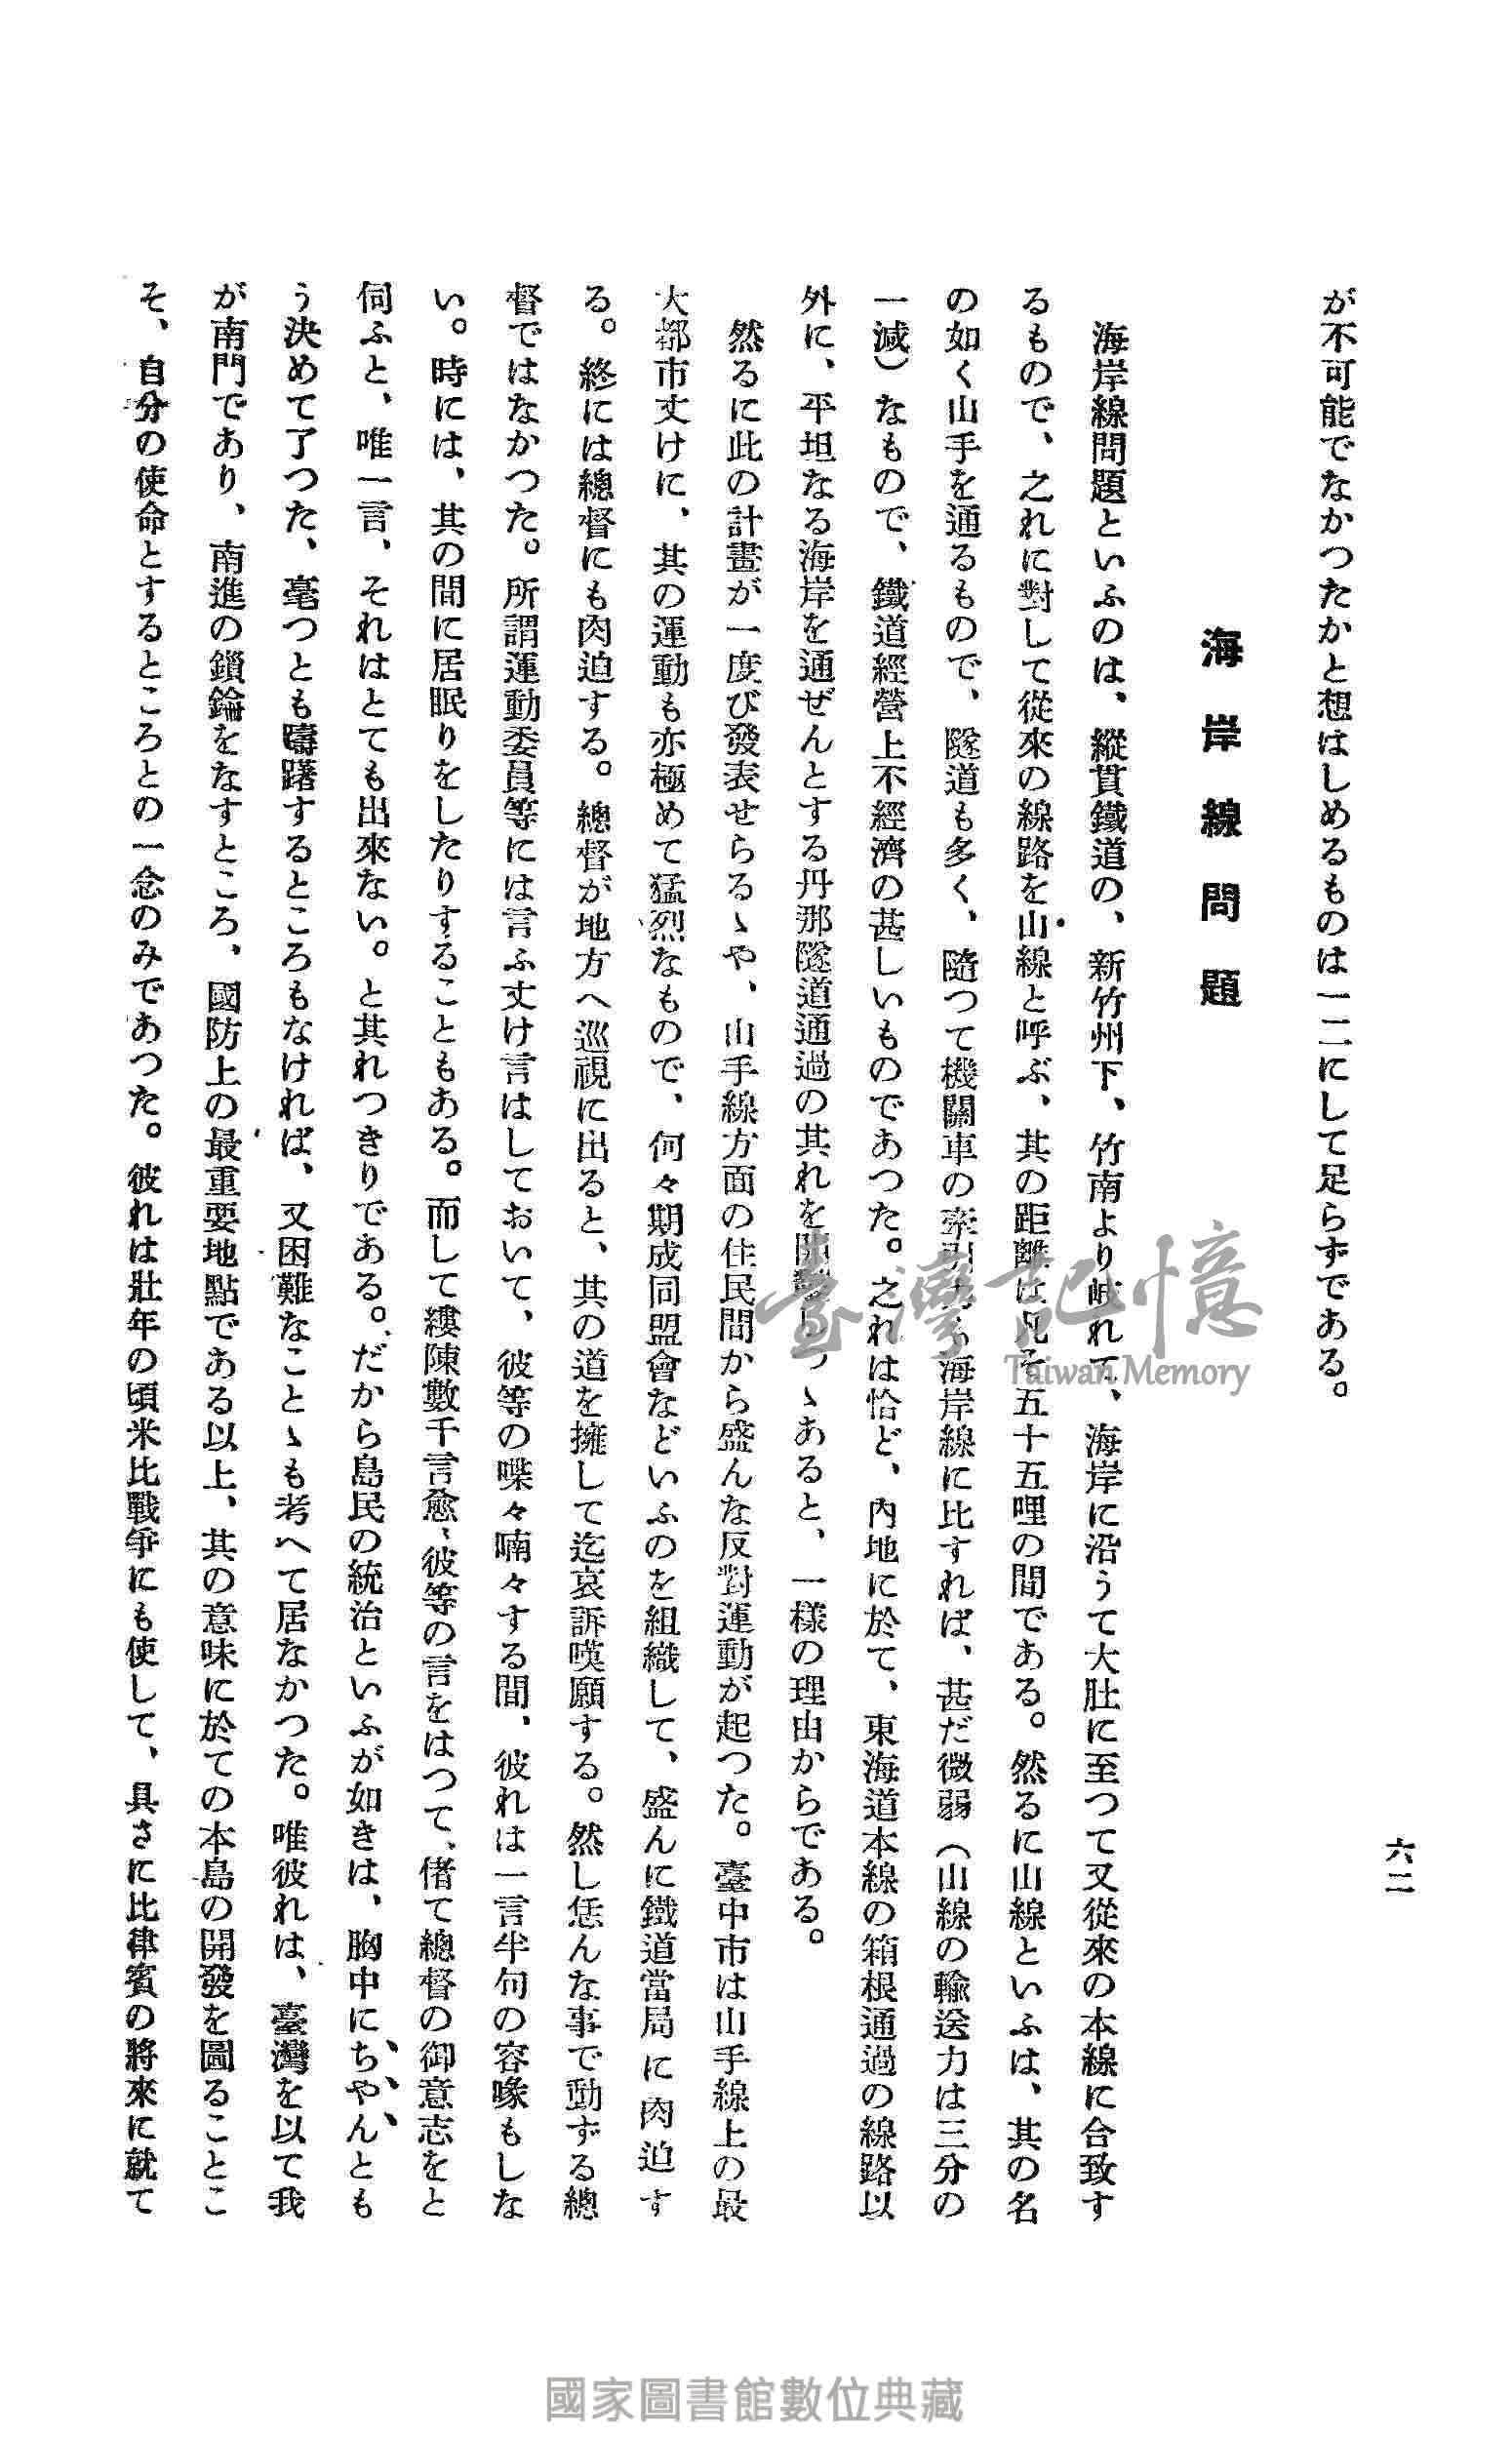 六二
が不可能でなかつたかと想はしめるものは一二にして足らずである。
海岸線問題
海岸線問題といふのは、縱貫鐵道の、新竹州下、竹南より岐れて、海岸に沿うて大肚に至つて又從來の本線に合致す
るもので、之れに對して從來の線路を山線と呼ぶ、其の距離は凡そ五十五哩の間である。然るに山線といふは、其の名
の如く山手を通るもので、隧道も多く、隨つて機關車の牽引力も海岸線に比すれば、甚だ微弱(山線の輸送力は三分の
一減)なもので、鐵道經營上不經濟の甚しいものであつた。之れは恰ど、內地に於て、東海道本線の箱根通過の線路以
外に、平坦なる海岸を通ぜんとする丹那隧道通過の其れを開鑿しつゝあると、一樣の理由からである。
然るに此の計畫が一度び發表せらるゝや、山手線方面の住民間から盛んな反對運動が起つた。臺中市は山手線上の最
大都市丈けに、其の運動も亦極めて猛烈なもので、何々期成同盟會などいふのを組織して、盛んに鐵道當局に肉迫す
る。終には總督にも肉迫する。總督が地方へ巡視に出ると、其の道を擁して迄哀訴嘆願する。然し恁んな事で動ずる總
督ではなかつた。所謂運動委員等には言ふ丈け言はしておいて、彼等の喋々喃々する間、彼れは一言半句の容喙もしな
い。時には、其の間に居眠りをしたりすることもある。而して縷陳數千言愈〻彼等の言をはつて、偖て總督の御意志をと
伺ふと、唯一言、それはとても出來ない。と其れつきりである。だから島民の統治といふが如きは、胸中にちやんとも
う決めて了つた、毫つとも躊躇するところもなければ、又困難なことゝも考へて居なかつた。唯彼れは、臺灣を以て我
が南門であり、南進の鎖鑰をなすところ、國防上の最重要地點である以上、其の意味に於ての本島の開發を圖ることこ
そ、自分の使命とするところとの一念のみであつた。彼れは壯年の頃米比戰爭にも使して、具さに比律賓の將來に就て
臺灣記憶
Taiwan Memory
國家圖書館數位典藏